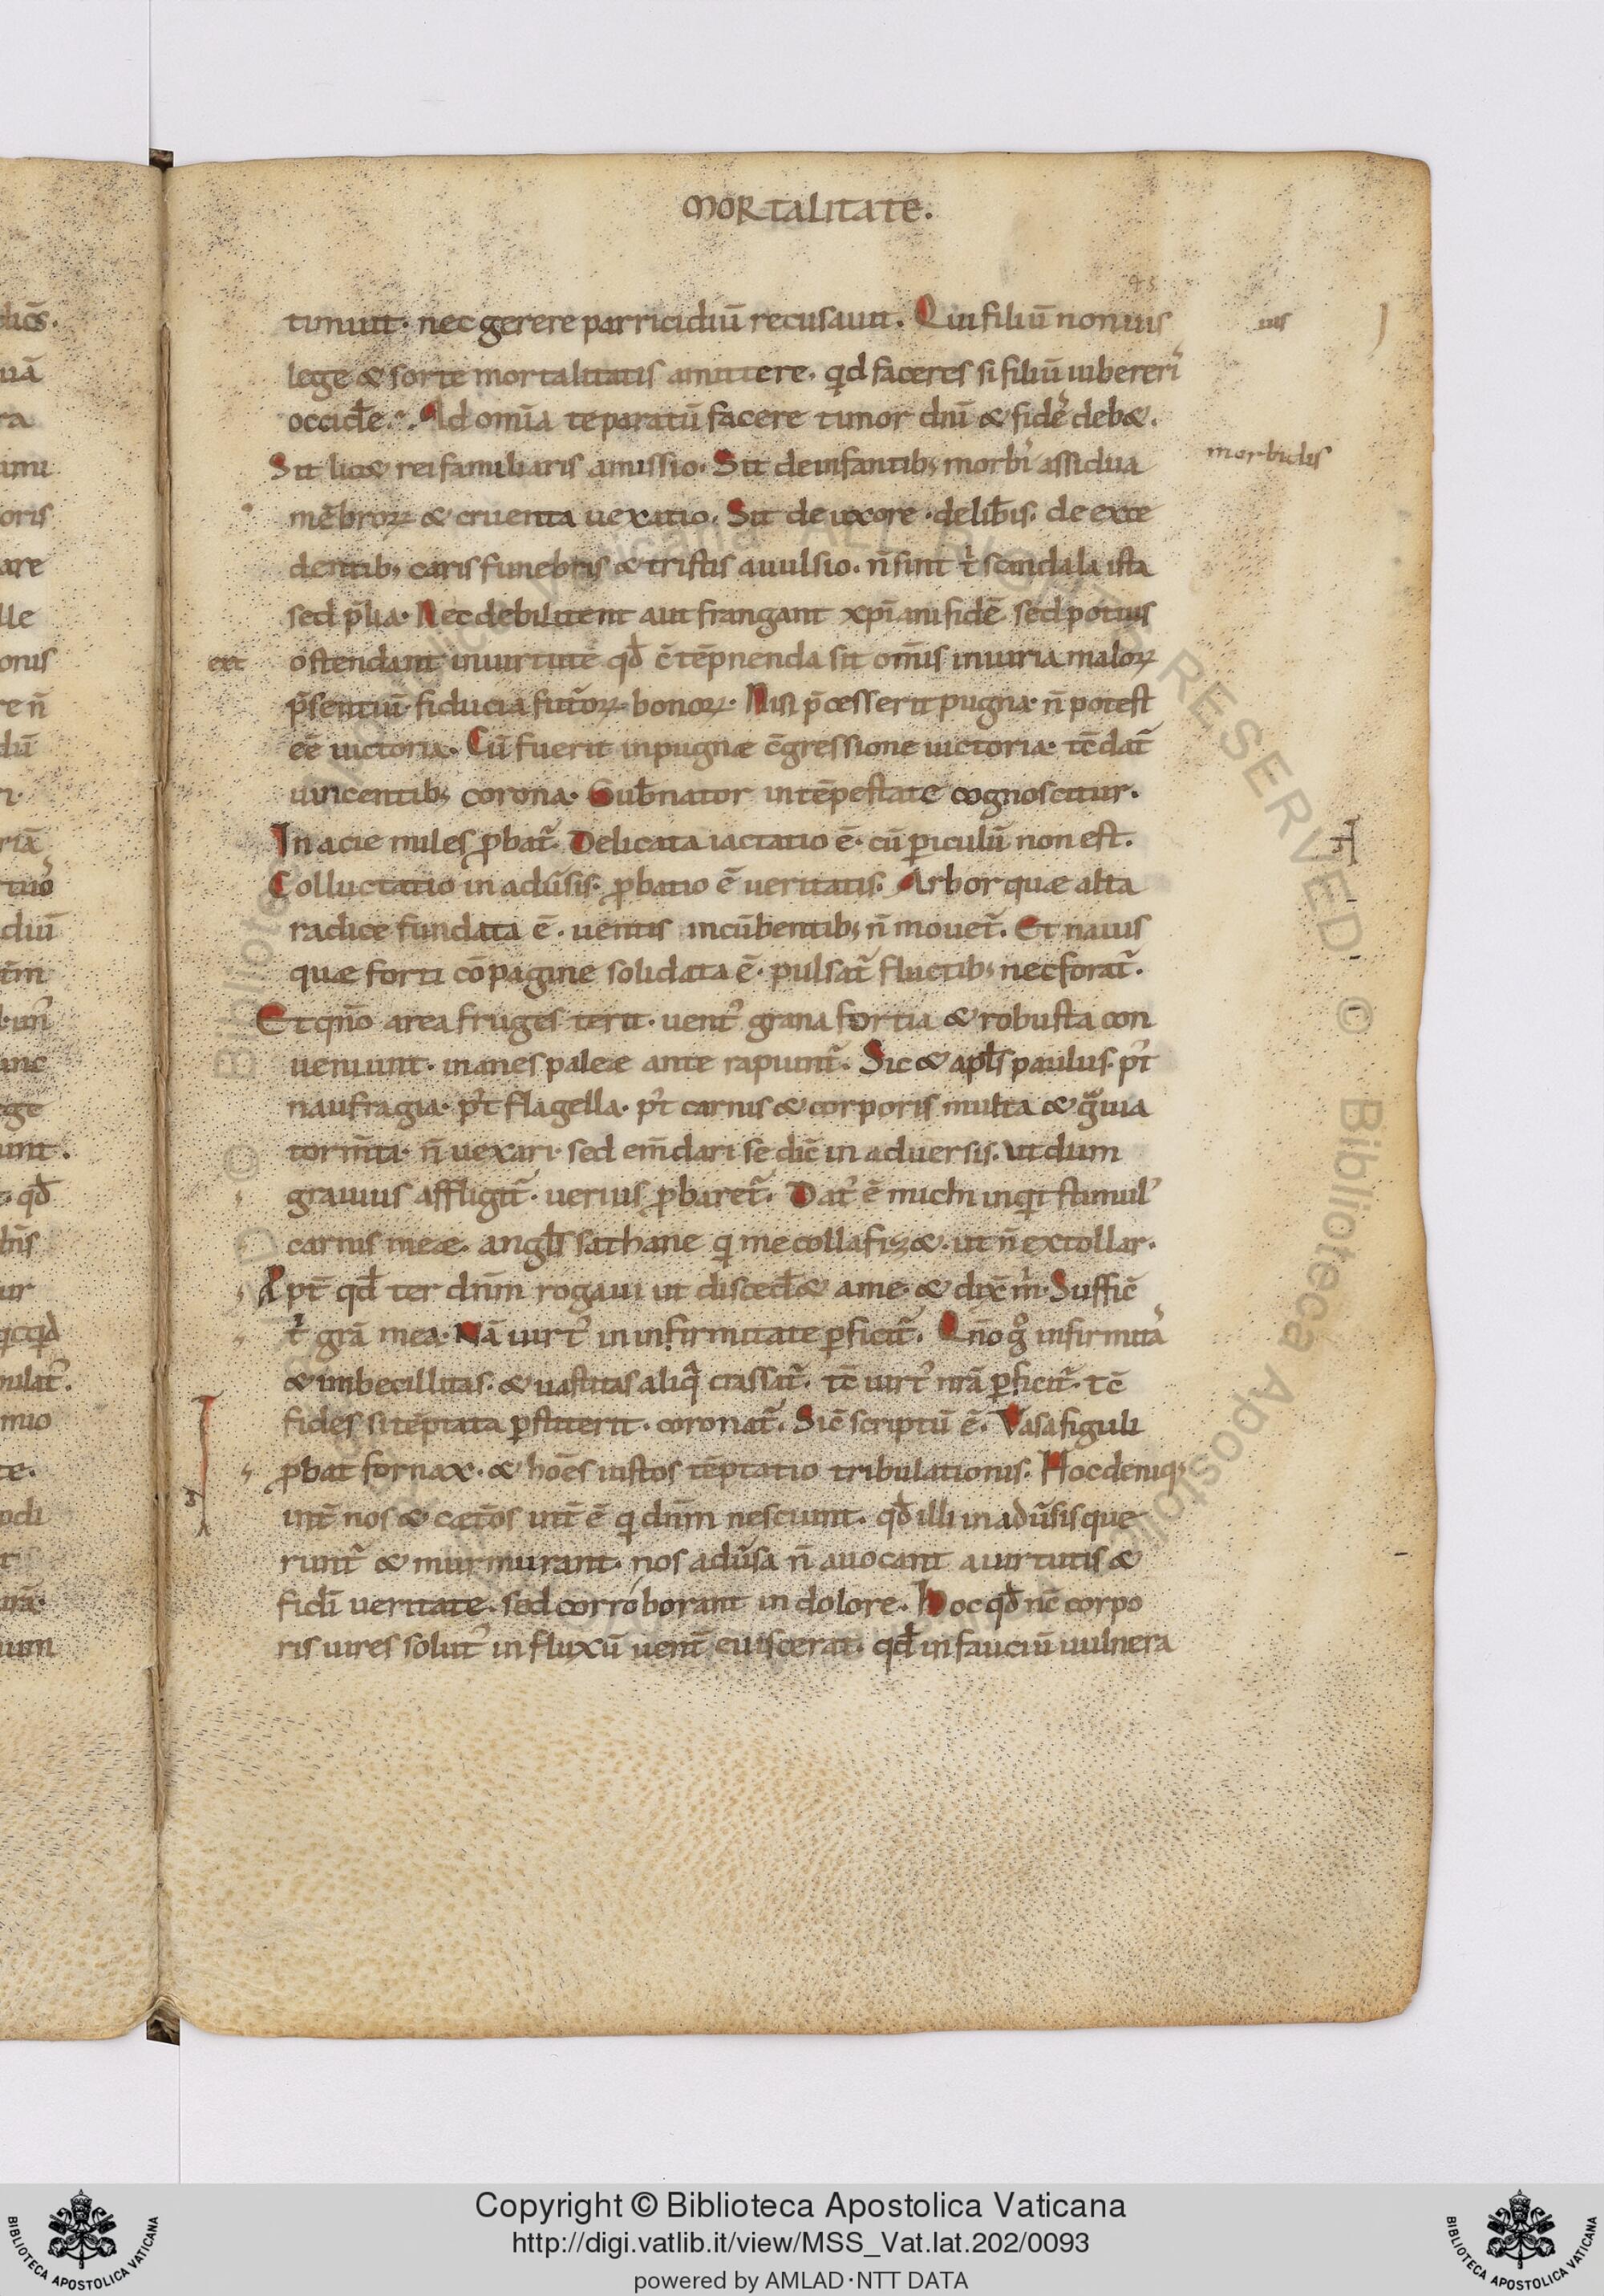 MORTALITATE.
45
timuit· nec gerere parricidiū recusauit. Qui filiū non uis
uis
lege & sorte mortalitatis amittere. qid faceres si filiū iubereri᷒
occidēe. Ad omīa te paratū facere timor dnī & fidēi deb&.
Sit lic& rei familiaris amissio. Sit de infantib; morbi᷒ assidua
morbidis
mēbroꝝ & cruenta uexatio. Sit de uxore· de lib̄is· de exce
dentib; caris funebris & tristis auulsio. n̄ sint t̓ scandala ista
sed p̄lia· Nec debilitent aut frangant xp̄iani fidē· sed potius
ostendant in uirtutē qd̄ c̄tēpnenda sit om̄is iniuria maloꝝ
p̄sentiū· fiducia fut̄oꝝ bonoꝝ. Nisi p̄cesserit pugna· n̄ potest
eē uictoria. Cū fuerit in pugnæ c̄gressione uictoria· tē dat̄
uincentib; corona· Gub̄nator in tēpestate cognoscitur.
In acie miles ꝓbat̄. Delicata iactatio ē· cū ꝑiculū non est.
Colluctatio in adūsis· ꝓbatio ē ueritatis. Arbor quæ alta
radice fundata ē. uentis incūbentib; n̄ mouet̄. Et nauis
quæ forti cōpagine solidata ē· pulsat̄ fluctib; nec forat̄.
Et qn̄o area fruges terit. uent᷒ grana fortia & robusta con
ueniunt· inanes paleæ ante rapiunt̄. Sic & apl̄s paulus· p᷒t
naufragia· p᷒t flagella· p᷒t carnis & corporis multa & g̃uia
torm̄ta· n̄ uexari· sed em̄dari se dic̄ in aduersis. ut dum
grauius affligit̄· uerius ꝓbaret̄. Dat᷒ ē michi inqi̓t stimul᷒
carnis meæ. angl̄s sathane qi me collafiz&. ut n̄ extollar.
Apt̄ qd̄ ter dn̄m rogaui ut disced̄& a me· & dix̄ m̓· Suffic̄
t̓ grā mea· Nā uirt᷒ in infirmitate ꝑficit̄. Qn̄o g̊ infirmita᷒
& imbecillitas. & uastitas aliq̃ crassat̄. tē uirt᷒ nrā ꝑficit̄· tē
fides si tēptata ꝑstiterit. coronat̄. Sic̄ scriptū ē. Vasa figuli
ꝓbat fornax. & hoēs iustos tēptatio tribulationis. Hoc deniq;
int̄ nos & cæt̄os int̄ ē qi dn̄m nesciunt. qd̄ illi in adūsis que
runt̄ & murmurant· nos adūsa n̄ auocant a uirtutis &
fidi̅ ueritate. sed corroborant in dolore. Hoc qd̄ nc̄ corpo
ris uires solut᷒ in fluxū uent̄ euiscerat· qd̄ in fauciū uulnera
Copyright © Biblioteca Apostolica Vaticana
http://digi.vatlib.it/view/MSS_Vat.lat.202/0093
powered by AMLAD·NTT DATA
BIBLIOTECA APOSTOLICA VATICANA
BIBLIOTECA APOSTOLICA VATICANA